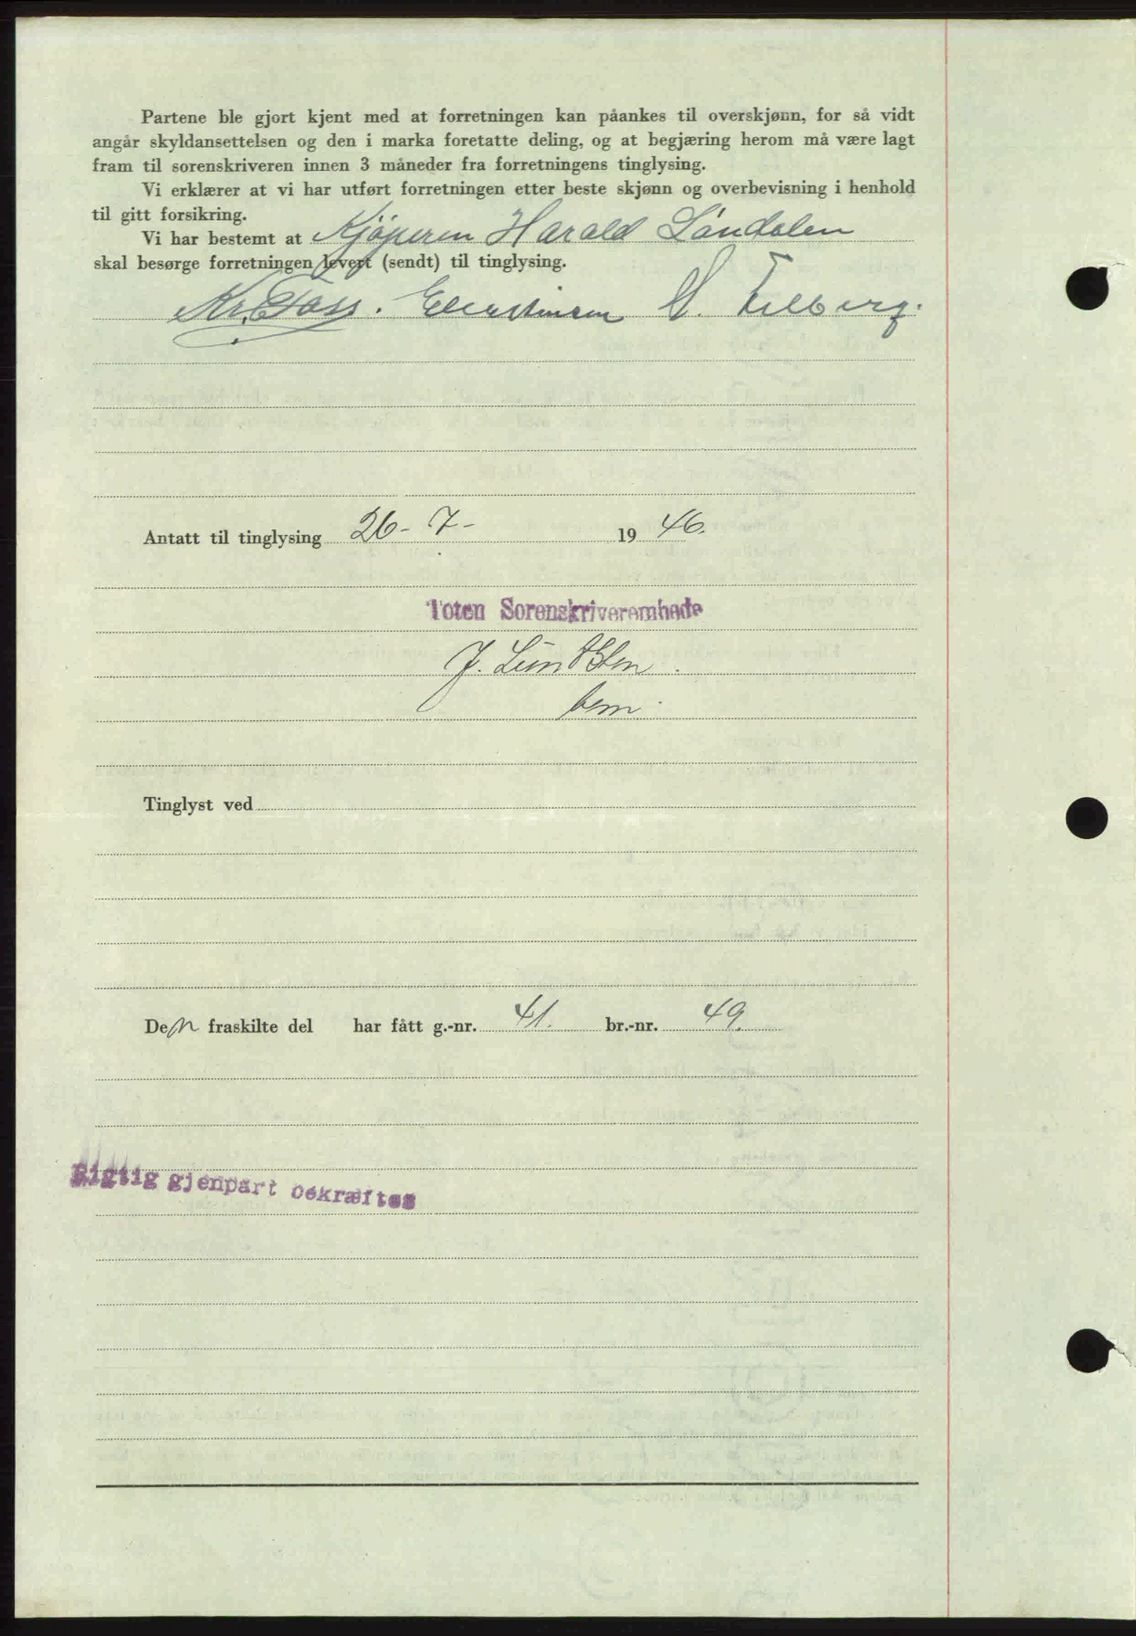 Partene ble gjort kjent med at forretningen kan påankes til overskjønn, for så vidt
angår skyldansettelsen og den i marka foretatte deling, og at begjæring herom må være lagt
fram til sorenskriveren innen 3 måneder fra forretningens tinglysing.
Vi erklærer at vi har utført forretningen etter beste skjønn og overbevisning i henhold
til gitt forsikring.
Vi har bestemt at Kjøperen Harald Løndalen
skal besørge forretningen levert (sendt) til tinglysing.
Kr. Foss.
Antatt til tinglysing 26-7- 1946.
Toten Sorenskriverembede
Tinglyst ved
Den fraskilte del har fått g.-nr. 41. br.-nr. 49.
Rigtig gjenpart bekræftes